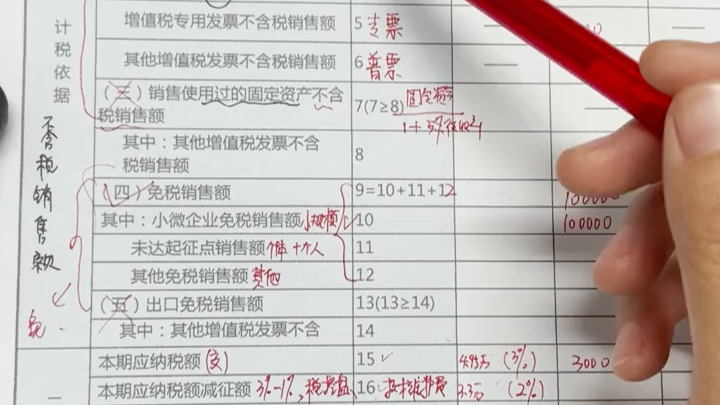 计税依据
不含税销售额
增值税专用发票不含税销售额 5 专票 —
其他增值税发票不含税销售额 6 普票 —
(三)销售使用过的固定资产不含税销售额 7(7≥8) 固定资产
其中:其他增值税发票不含税销售额 8
(四)免税销售额 9=10+11+12 100000
其中:小微企业免税销售额 小规模 10 100000
未达起征点销售额 个体+个人 11
其他免税销售额 其他 12
(五)出口免税销售额 13(13≥14)
免.
其中:其他增值税发票不含 14
本期应纳税额(交) 15 4.95万 (3%) 3000
一 本期应纳税额减征额 3%-1%,税控盘、 16 技术维护费 3.3万 (2%)